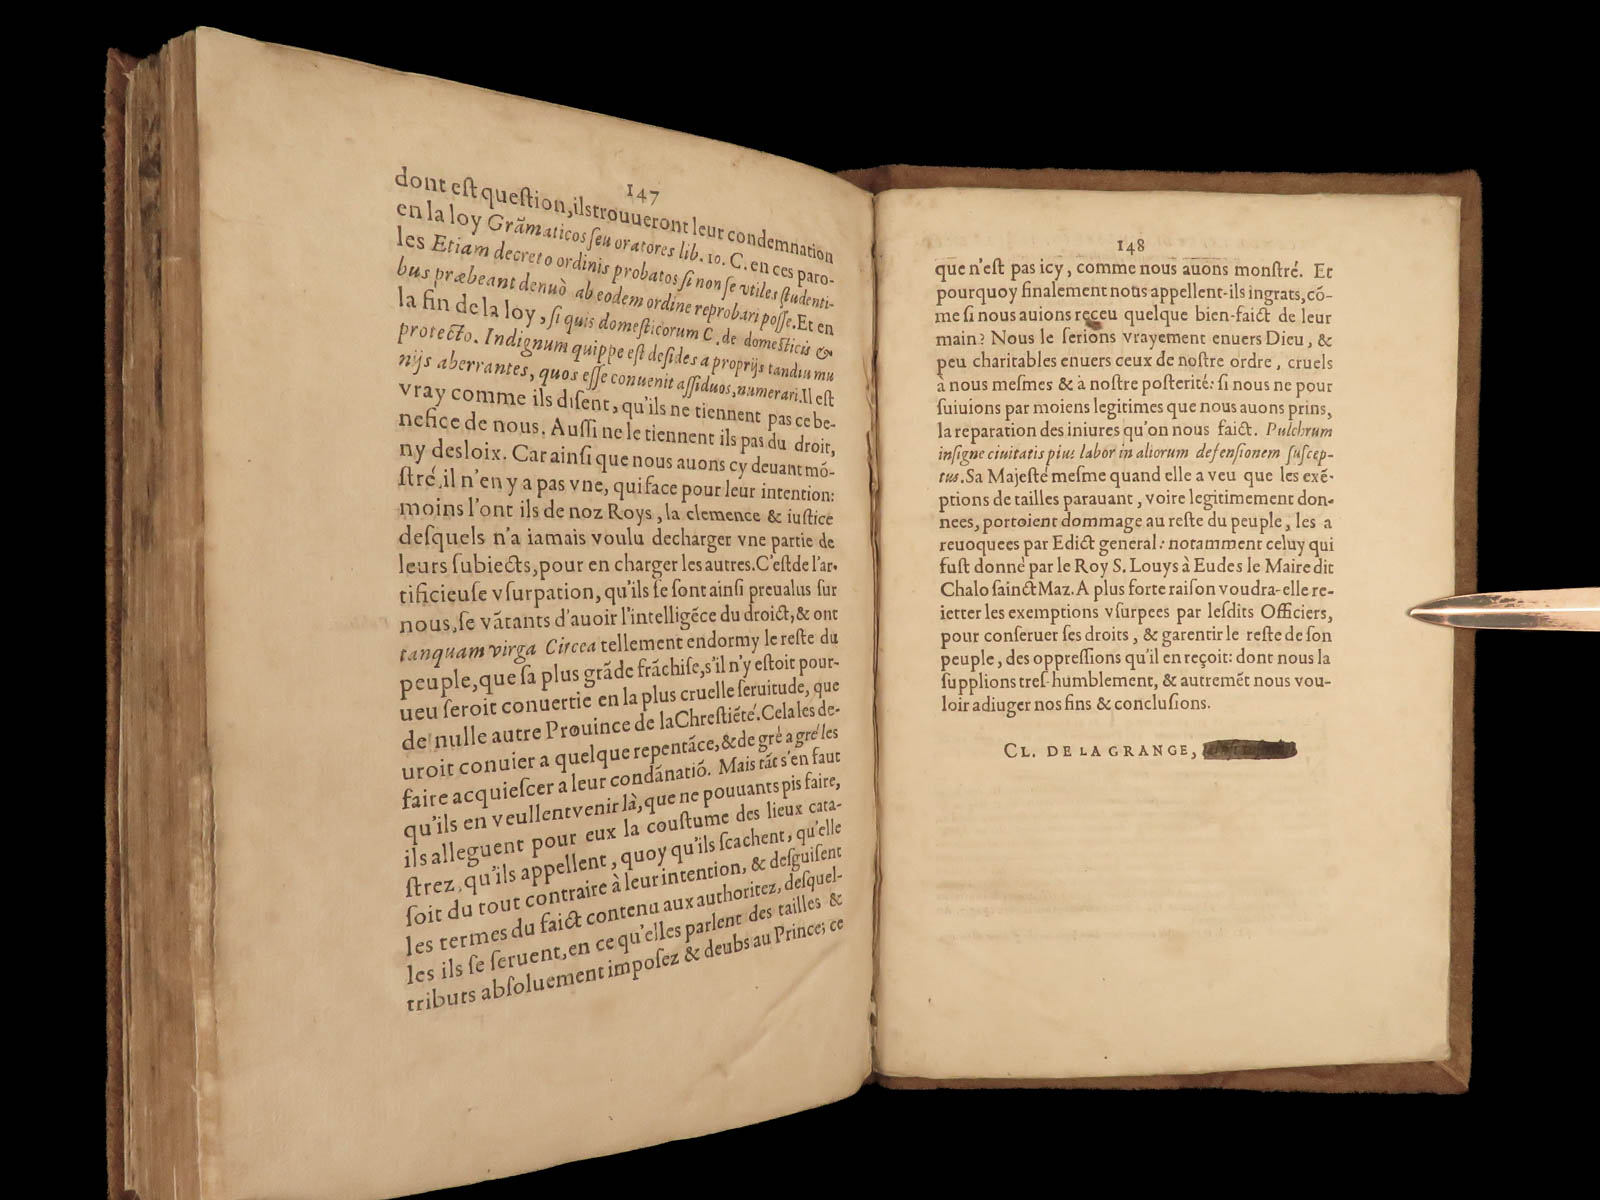 147
dont eſt queſtion, ils trouueront leur condemnation
en la loy Grãmaticos ſeu oratores lib. 10. C. en ces paro-
les Etiam decreto ordinis probatos ſi non ſe vtiles ſtudenti-
bus præbeant denuò ab eodem ordine reprobari poſſe. Et en
la fin de la loy, ſi quis domeſticorum C. de domeſticis &
protecto. Indignum quippe eſt deſides a proprijs tandiu mu
nijs aberrantes, quos eſſe conuenit aſſiduos, numerari. Il eſt
vray comme ils diſent, qu'ils ne tiennent pas ce be-
nefice de nous. Auſſi ne le tiennent ils pas du droit,
ny des loix. Car ainſi que nous auons cy deuant mõ-
ſtré, il n'en y a pas vne, qui face pour leur intention:
moins l'ont ils de noz Roys, la clemence & iuſtice
deſquels n'a iamais voulu decharger vne partie de
leurs ſubiects, pour en charger les autres. C'eſt de l'ar-
tificieuſe vſurpation, qu'ils ſe ſont ainſi preualus ſur
nous, ſe vãtants d'auoir l'intelligẽce du droict, & ont
tanquam virga Circea tellement endormy le reſte du
peuple, que ſa plus grãde frãchiſe, s'il n'y eſtoit pour-
ueu ſeroit conuertie en la plus cruelle ſeruitude, que
de nulle autre Prouince de la Chreſtiẽté. Cela les de-
uroit conuier a quelque repentãce, & de gré a gré les
faire acquieſcer a leur condãnatiõ. Mais tãt s'en faut
qu'ils en veullent venir là, que ne pouuants pis faire,
ils alleguent pour eux la couſtume des lieux cata-
ſtrez, qu'ils appellent, quoy qu'ils ſcachent, qu'elle
ſoit du tout contraire à leur intention, & deſguiſent
les termes du faict contenu aux authoritez, deſquel-
les ils ſe ſeruent, en ce qu'elles parlent des tailles &
tributs abſoluement impoſez & deubs au Prince; ce
148
que n'eſt pas icy, comme nous auons monſtré. Et
pourquoy finalement nous appellent-ils ingrats, cõ-
me ſi nous auions reçeu quelque bien-faict de leur
main? Nous le ſerions vrayement enuers Dieu, &
peu charitables enuers ceux de noſtre ordre, cruels
à nous meſmes & à noſtre poſterité: ſi nous ne pour
ſuiuions par moiens legitimes que nous auons prins,
la reparation des iniures qu'on nous faict. Pulchrum
inſigne ciuitatis pius labor in aliorum defenſionem ſuſcep-
tus. Sa Majeſté meſme quand elle a veu que les exẽ-
ptions de tailles parauant, voire legitimement don-
nees, portoient dommage au reſte du peuple, les a
reuoquees par Edict general: notamment celuy qui
fuſt donné par le Roy S. Louys à Eudes le Maire dit
Chalo ſainct Maz. A plus forte raiſon voudra-elle re-
ietter les exemptions vſurpees par leſdits Officiers,
pour conſeruer ſes droits, & garentir le reſte de ſon
peuple, des oppreſſions qu'il en reçoit: dont nous la
ſupplions treſ-humblement, & autremẽt nous vou-
loir adiuger nos fins & concluſions.
CL. DE LA GRANGE,